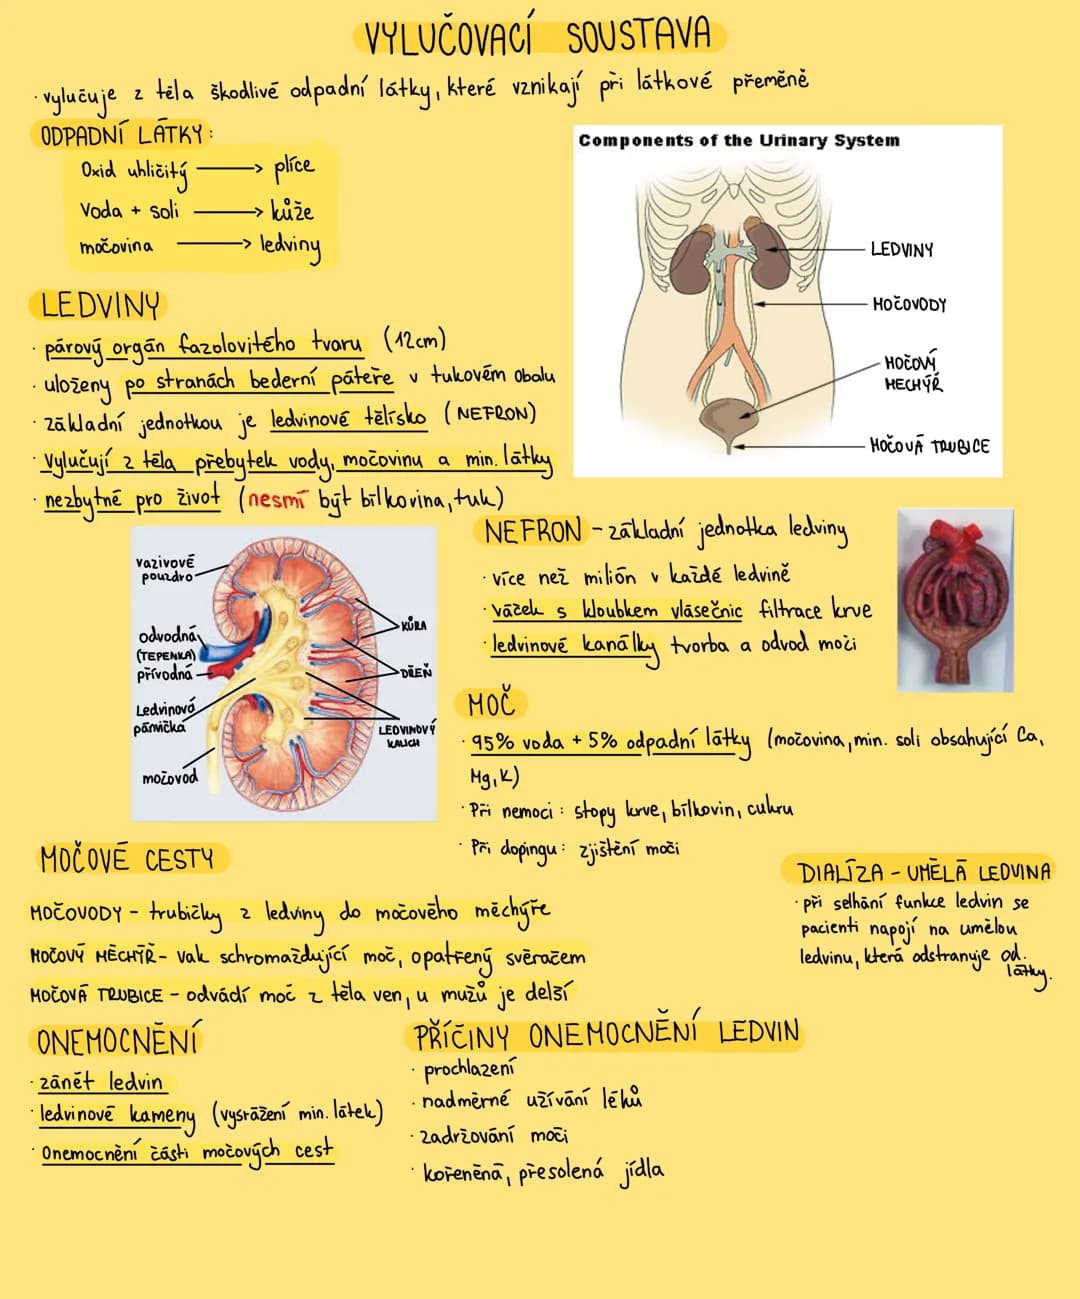 VYLUČOVACÍ SOUSTAVA
· vylučuje z těla škodlivé odpadní látky, které vznikají při látkové přeměně
ODPADNÍ LÁTKY:
Oxid uhličitý → plíce
Voda + soli → kůže
močovina → ledviny
Components of the Urinary System
LEDVINY
MOČOVODY
MOČOVÝ
MĚCHÝŘ
MOČOVÁ TRUBICE
LEDVINY
· párový orgán fazolovitého tvaru (12cm)
· uloženy po stranách bederní páteře v tukovém obalu
· základní jednotkou je ledvinové tělísko (NEFRON)
· Vylučují z těla přebytek vody, močovinu a min. látky
· nezbytné pro život (nesmí být bílkovina, tuk)
vazivové
pouzdro
odvodná
(TEPENKA)
přívodná
Ledvinová
pánvička
močovod
KŮRA
DŘEŇ
LEDVINOVÝ
KALICH
NEFRON - základní jednotka ledviny
· více než milión v každé ledvině
· váček s kloubkem vlásečnic filtrace krve
· ledvinové kanálky tvorba a odvod moči
MOČ
· 95% voda + 5% odpadní látky (močovina, min. soli obsahující Ca,
Mg, K)
· Při nemoci : stopy krve, bílkovin, cukru
· Při dopingu : zjištění moči
MOČOVÉ CESTY
MOČOVODY - trubičky z ledviny do močového měchýře
MOČOVÝ MĚCHÝŘ - vak schromažďující moč, opatřený svěračem
MOČOVÁ TRUBICE - odvádí moč z těla ven, u mužů je delší
DIALÍZA - UMĚLÁ LEDVINA
· při selhání funkce ledvin se
pacienti napojí na umělou
ledvinu, která odstraňuje od.
látky.
ONEMOCNĚNÍ
· zánět ledvin
· ledvinové kameny (vysrážení min. látek)
· Onemocnění části močových cest
PŘÍČINY ONEMOCNĚNÍ LEDVIN
· prochlazení
· nadměrné užívání léků
· zadržování moči
· kořeněná, přesolená jídla